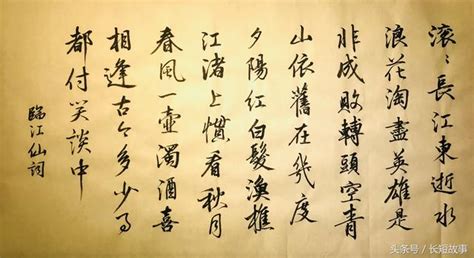 滚〻長江東逝水
浪花淘盡英雄是
非成敗轉頭空青
山依舊在幾度
夕陽紅白髮漁樵
江渚上慣看秋月
春風一壺濁酒喜
相逢古今多少事
都付笑談中
臨江仙詞
头条号 / 长短故事